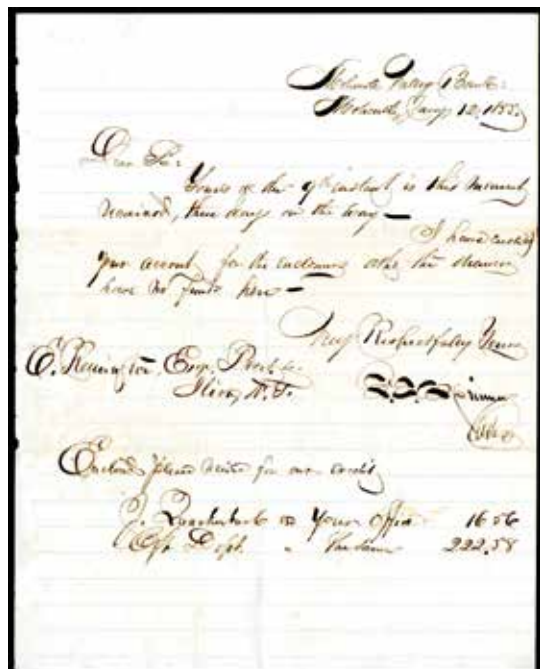 Mohawk Valley Bank
Mohawk, Jany 12, 1855.
Dear Sir:
Yours of the 9th instant is this moment
received, three days on the way —
I have credited
your account for the enclosures
have no funds here —
Very Respectfully Yours
E. Remington Esq. Prest &c
Ilion, N.Y.
F. E. Spinner
Enclosed please note for our credit
J. Quackenbush on Your Office 16.56
Dept. " the same 222.58